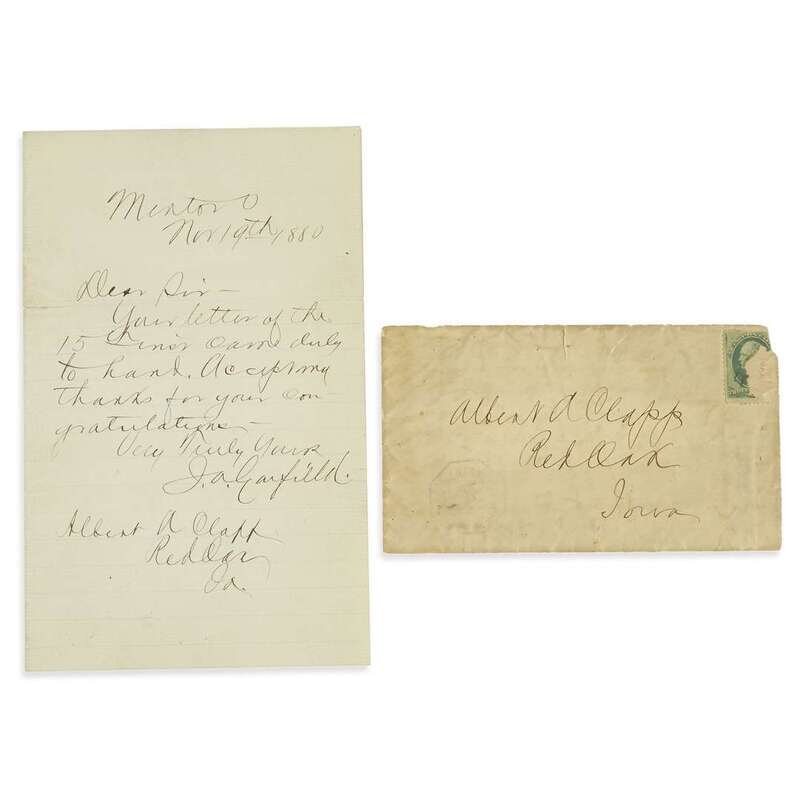 Mentor O
Nov 19th 1880
Dear Sir –
Your letter of the
15 inst came duly
to hand. Accept my
thanks for your con-
gratulations –
Very Truly Yours
J.A. Garfield.
Albert A Clapp
Red Oak
Ia.
Albert A Clapp
Red Oak
Iowa